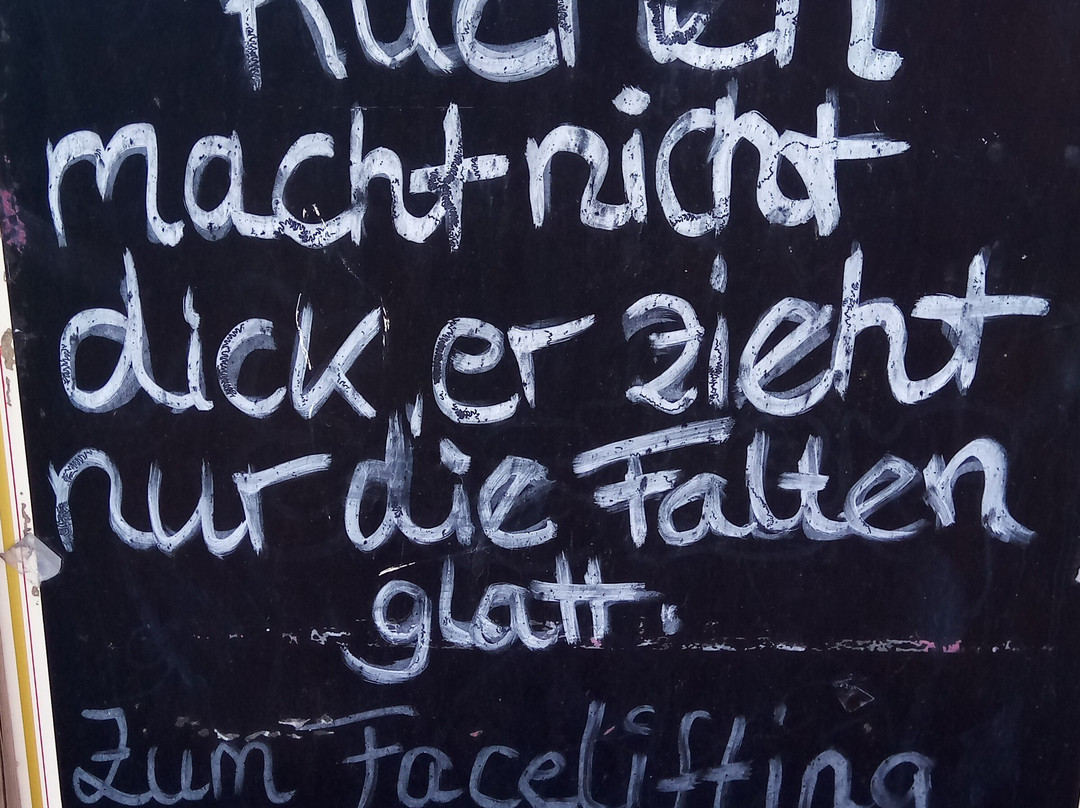 Kuchen
macht nicht
dick er zieht
nur die Falten
glatt.
Zum Facelifting